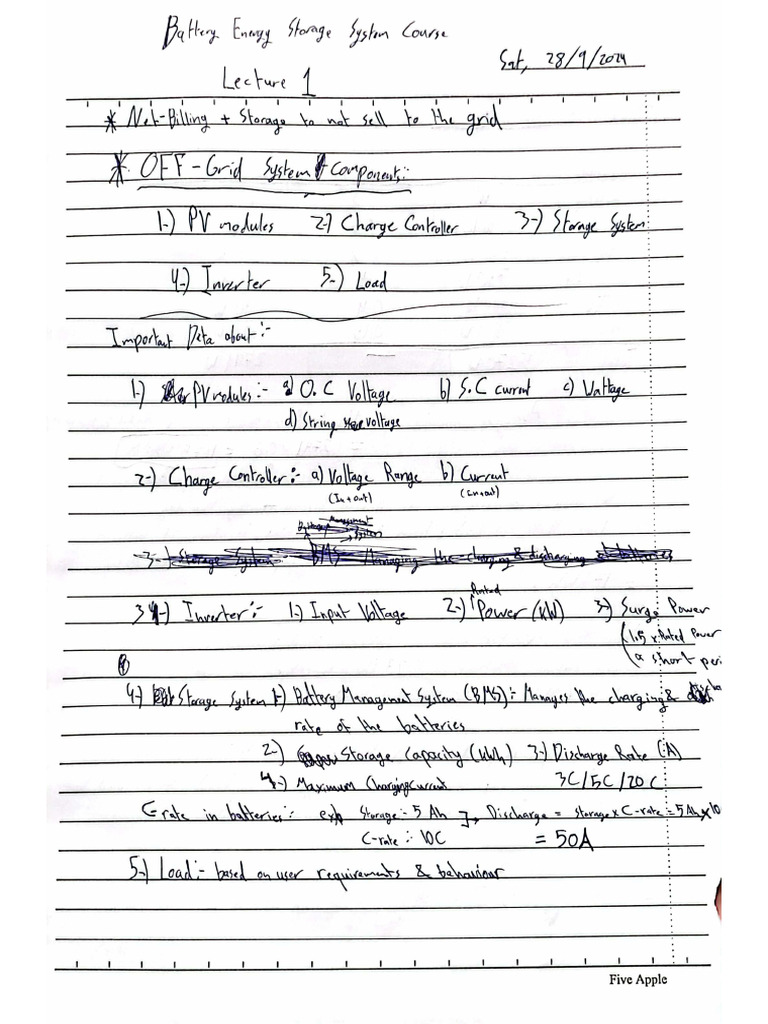 Battery Energy Storage System Course
Sat, 28/9/2024
Lecture 1
* Net-Billing + Storage to not sell to the grid
* OFF-Grid System Components:-
1-) PV modules 2-) Charge Controller 3-) Storage System
4-) Inverter 5-) Load
Important Data about:-
1-) PV modules:- a) O.C Voltage b) S.C current c) Wattage
d) String voltage
2-) Charge Controller:- a) Voltage Range b) Current
(In+out) (in+out)
Management
Battery System
3-) Storage System:- BMS Managing the charging & discharging of batteries
Rated
3-) Inverter:- 1-) Input Voltage 2-) Power (kW) 3-) Surge Power
(1.5 x Rated Power
a short peri
4-) Storage System 1-) Battery Management System (BMS):- Manages the charging &
rate of the batteries
2-) Storage Capacity (kWh) 3-) Discharge Rate (A)
4-) Maximum Charging Current 3C/5C/20C
C-rate in batteries:- exp Storage:- 5 Ah ]→ Discharge = Storage x C-rate = 5 Ah x 10
C-rate:- 10C = 50A
5-) Load:- based on user requirements & behaviour
Five Apple